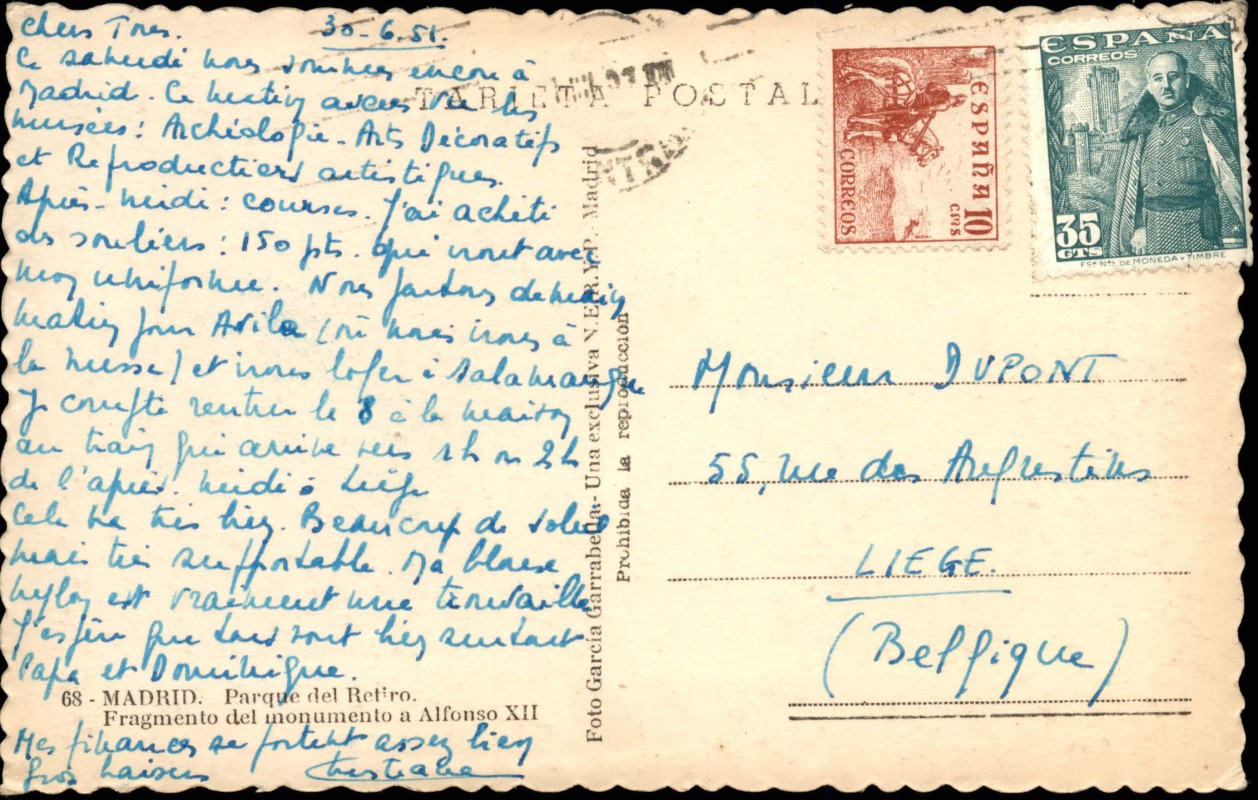 Chers Tous. 30-6.51.
Ce samedi nous sommes encore à
Madrid. Ce matin avons vu les
musées: Archéologie - Arts Décoratifs
et Reproductions artistiques.
Après-midi: courses. J'ai acheté
des souliers: 150 pts. qui vont avec
mon uniforme. Nous partons demain
matin pour Avila (où nous irons à
la messe) et irons loger à Salamanque
Je compte rentrer le 8 à la maison
au train qui arrive vers 1h ou 2h
de l'après-midi à Liège
Cela va très bien. Beaucoup de soleil
mais très supportable. Ma blouse
nylon est vraiment une trouvaille
J'espère que tous sont bien surtout
Papa et Dominique.
68 - MADRID. Parque del Retiro.
Fragmento del monumento a Alfonso XII
Mes finances se portent assez bien
Gros baisers Christiane
TARJETA POSTAL
Foto García Garrabella.- Una exclusiva N.E.R.Y.P. Madrid
Prohibida la reproducción
ESPAÑA
CORREOS
10
CTMS
ESPAÑA
CORREOS
35
CTS
FCA. NAL. DE MONEDA Y TIMBRE
Monsieur DUPONT
55, rue des Augustins
LIEGE.
(Belgique)